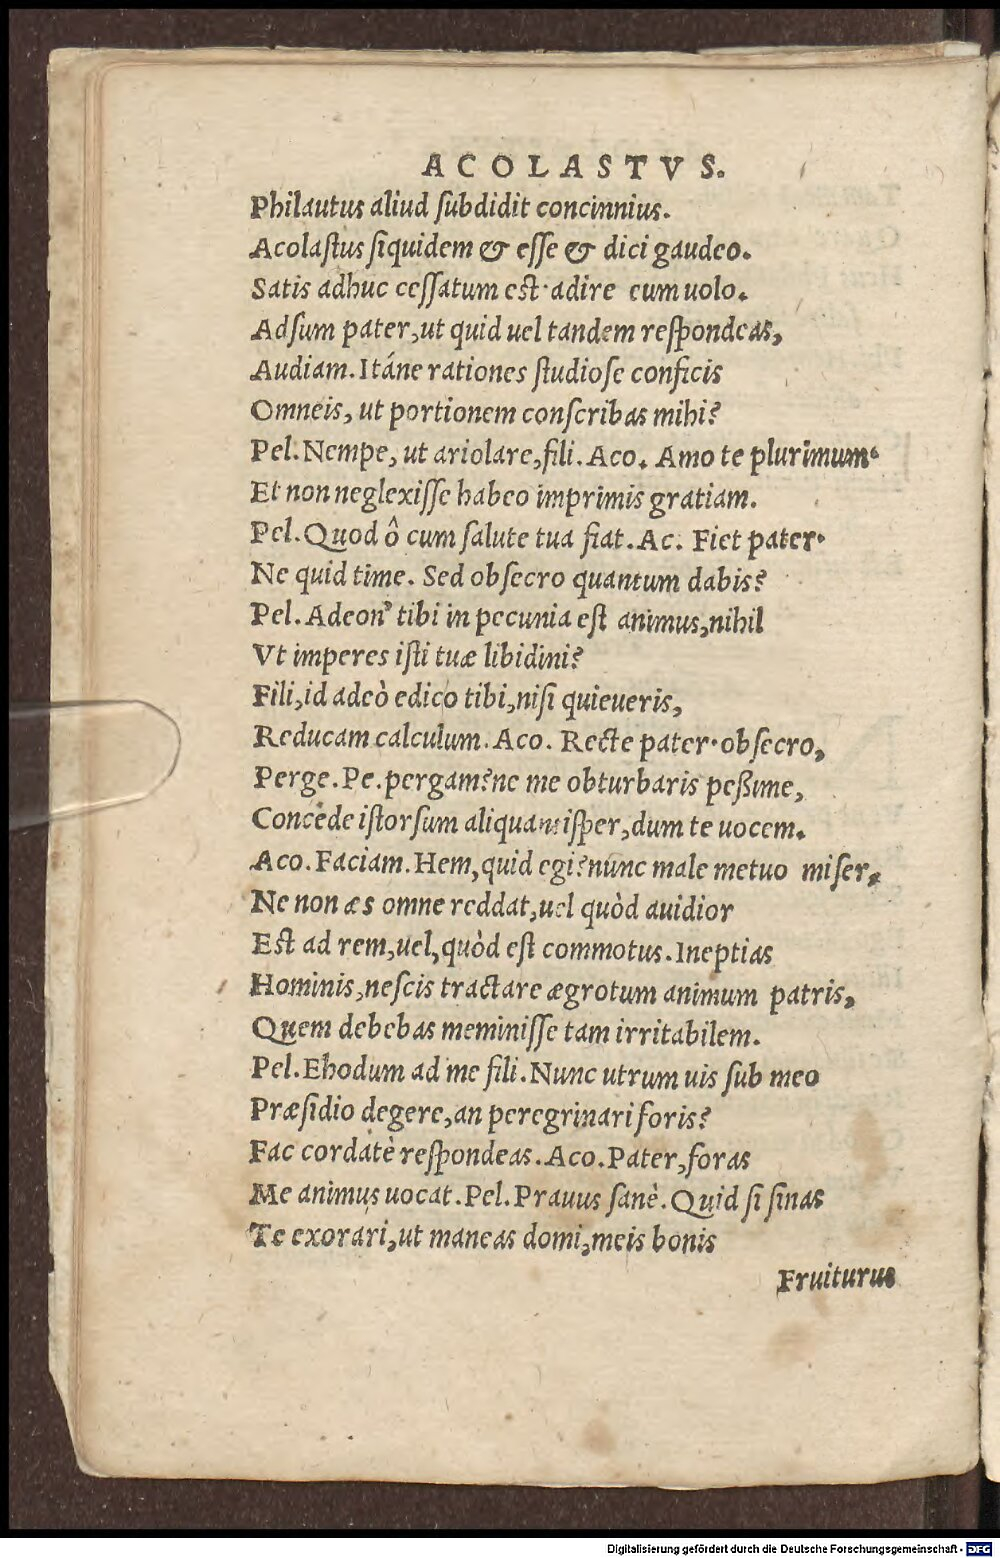 ACOLASTVS.
Philautus aliud subdidit concinnius.
Acolastus siquidem & esse & dici gaudeo.
Satis adhuc cessatum est·adire eum uolo.
Adsum pater, ut quid uel tandem respondeas,
Audiam. Itáne rationes studiose conficis
Omneis, ut portionem conscribas mihi?
Pel. Nempe, ut ariolare, fili. Aco. Amo te plurimum·
Et non neglexisse habeo imprimis gratiam.
Pel. Quod ô cum salute tua fiat. Ac. Fiet pater·
Ne quid time. Sed obsecro quantum dabis?
Pel. Adeon' tibi in pecunia est animus, nihil
Vt imperes isti tuæ libidini?
Fili, id adeò edico tibi, nisi quieueris,
Reducam calculum. Aco. Recte pater·obsecro,
Perge. Pe. pergam? ne me obturbaris peßime,
Concede istorsum aliquantisper, dum te uocem.
Aco. Faciam. Hem, quid egi? nunc male metuo miser,
Ne non æs omne reddat, uel quòd auidior
Est ad rem, uel, quòd est commotus. Ineptias
Hominis, nescis tractare ægrotum animum patris,
Quem debebas meminisse tam irritabilem.
Pel. Ehodum ad me fili. Nunc utrum uis sub meo
Præsidio degere, an peregrinari foris?
Fac cordatè respondeas. Aco. Pater, foras
Me animus uocat. Pel. Prauus sanè. Quid si sinas
Te exorari, ut maneas domi, meis bonis
Fruiturus
Digitalisierung gefördert durch die Deutsche Forschungsgemeinschaft - DFG